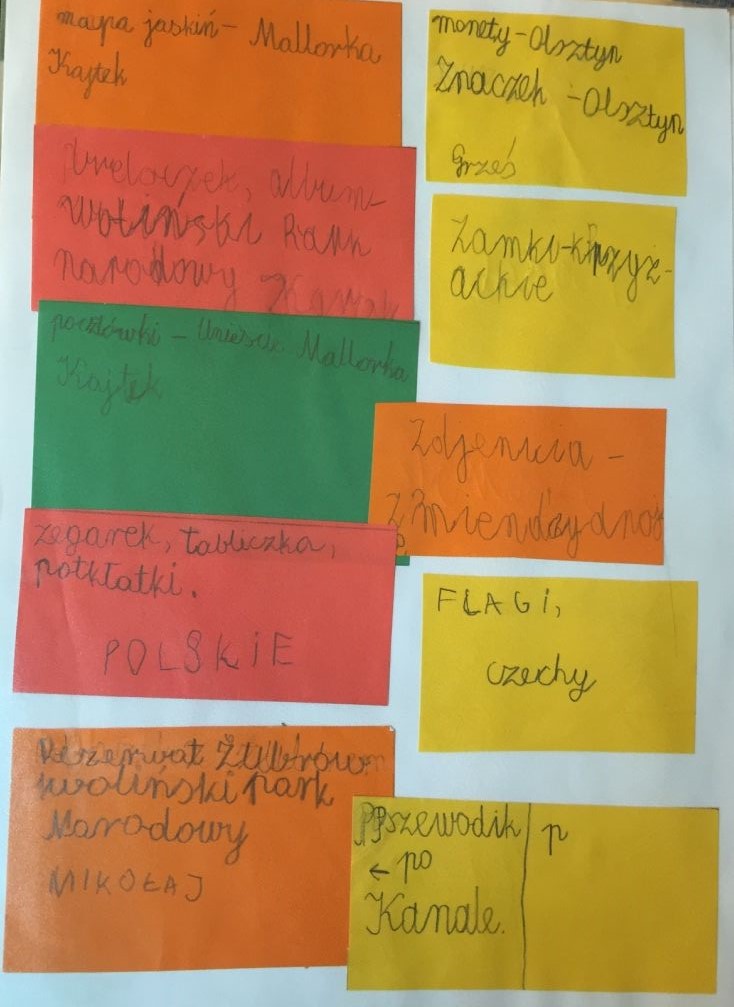 mapa jaskiń - Mallorka
Kajtek
breloczek, album -
Woliński Park
narodowy
pocztówki - Unieście Mallorka
Kajtek
zegarek, tabliczka,
potkłatki.
POLSKIE
Rezerwat Żubrów
woliński park
Narodowy
MIKOŁAJ
monety - Olsztyn
Znaczek - Olsztyn
Grześ
Zamki - krzyż-
ackie
Zdjencia -
FLAGi,
czechy
Pszewodik
← po
Kanale.
p